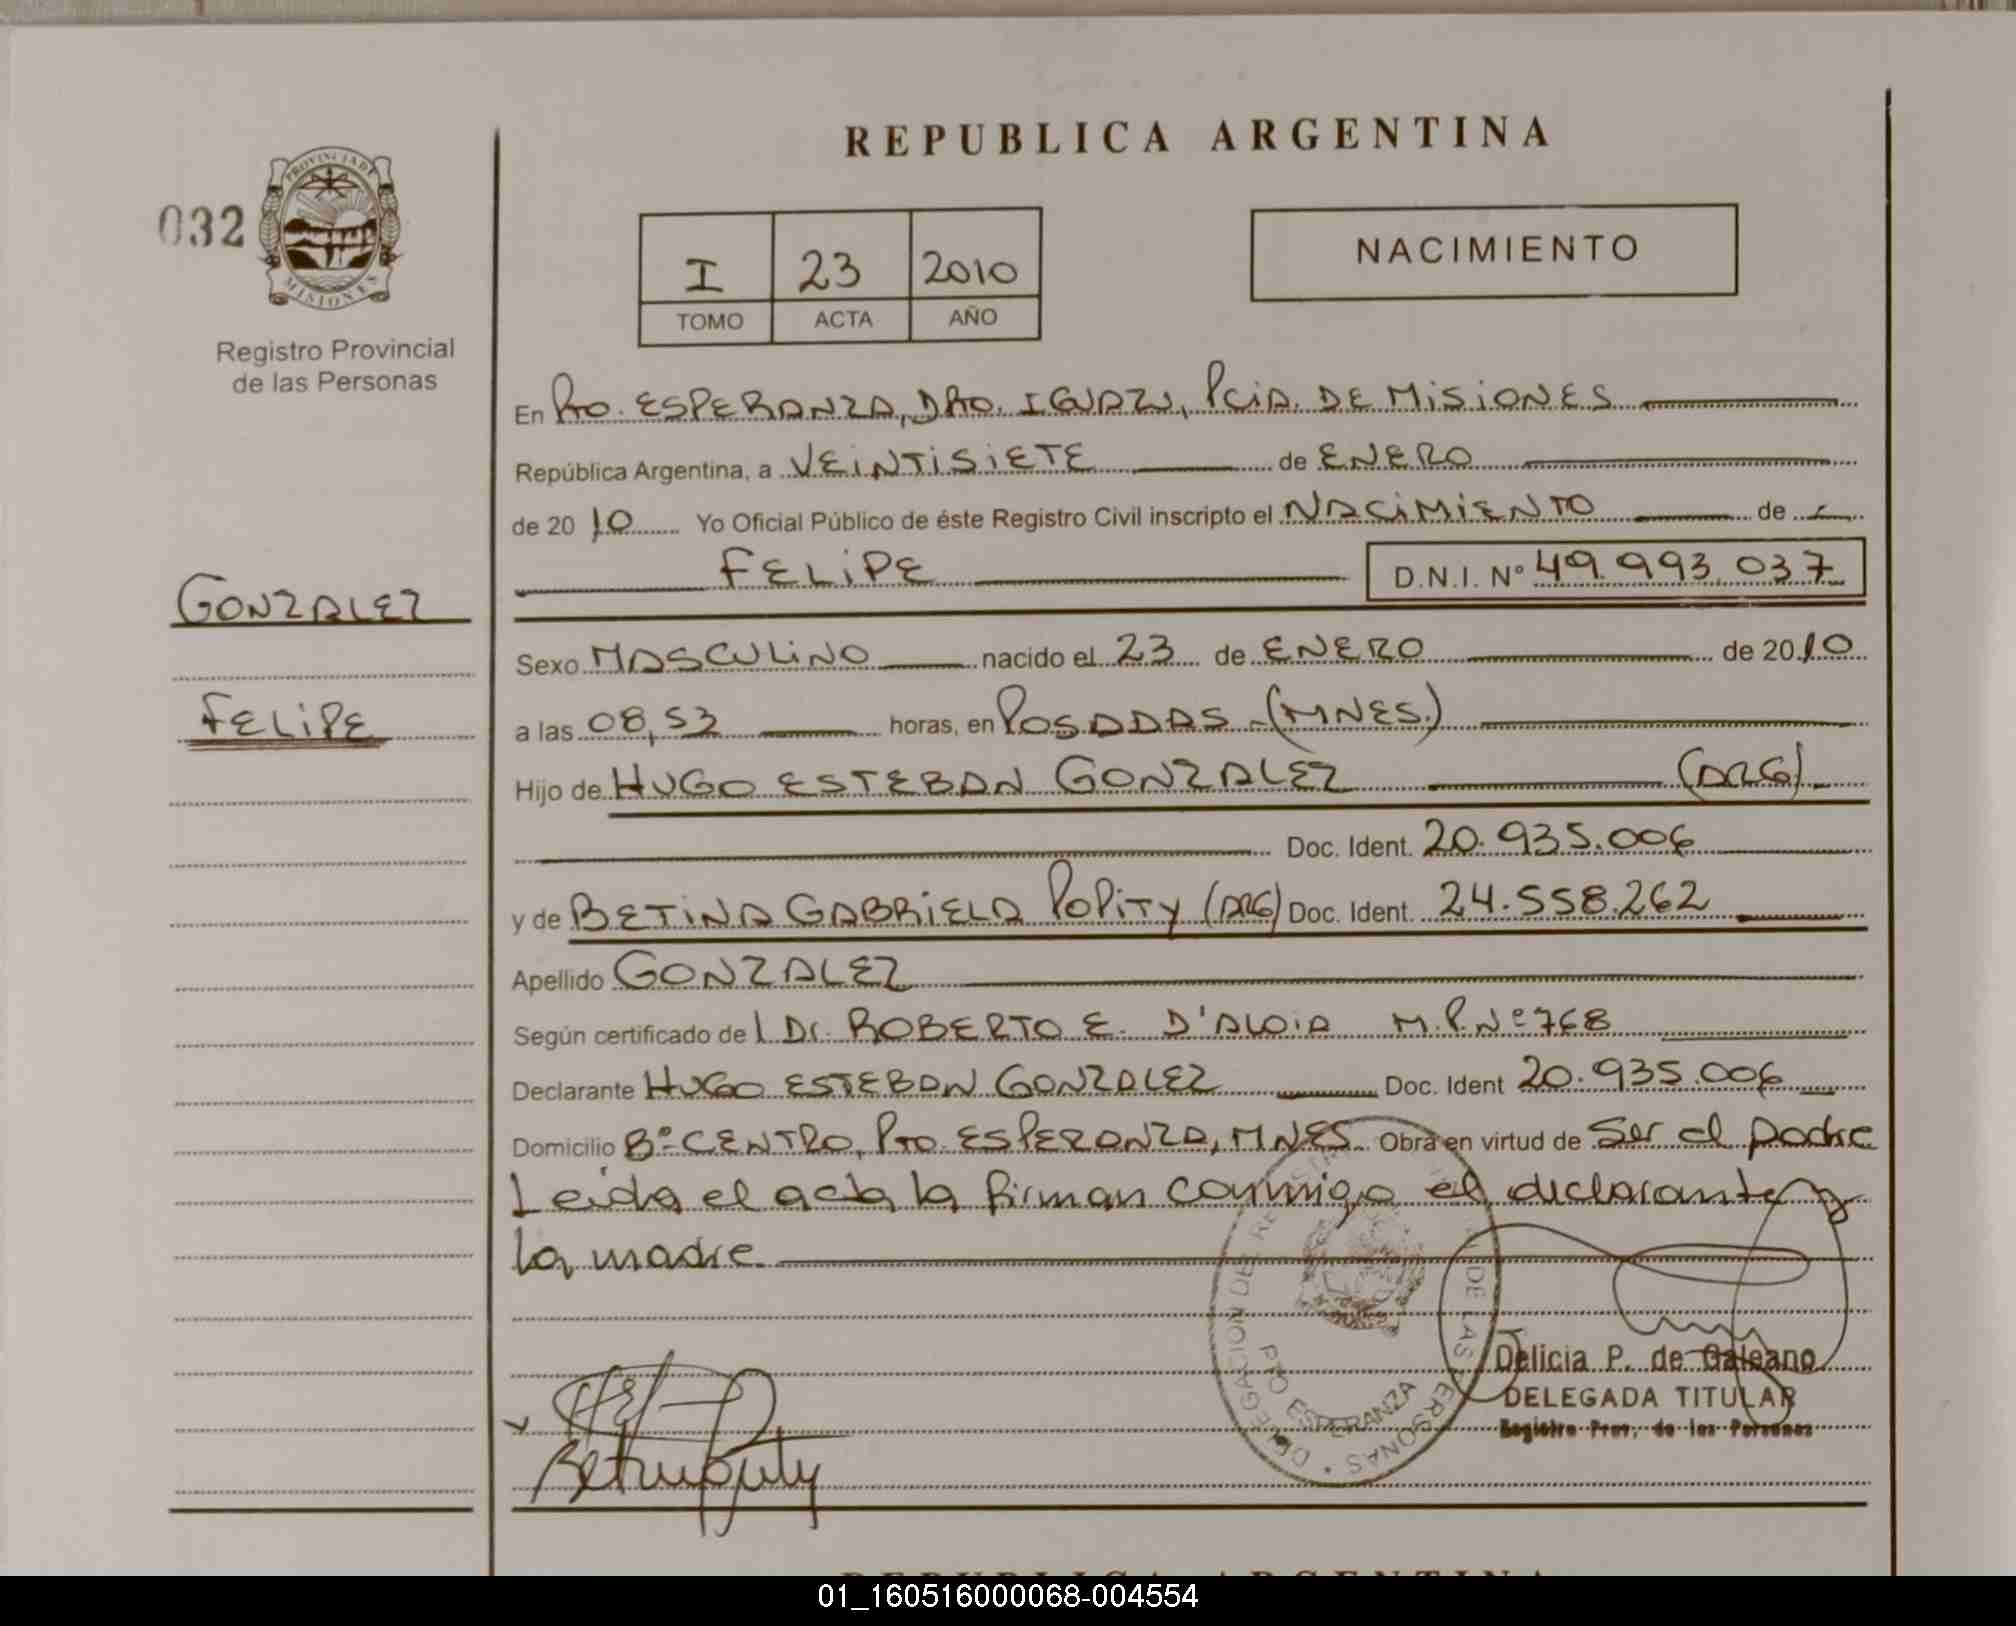 REPUBLICA ARGENTINA
032
PROVINCIA DE
MISIONES
Registro Provincial
de las Personas
I 23 2010
TOMO ACTA AÑO
NACIMIENTO
En Pto. ESPERANZA, DPTO. IGUAZU, PCIA. DE MISIONES
República Argentina, a VEINTISIETE de ENERO
de 2010 Yo Oficial Público de éste Registro Civil inscripto el NACIMIENTO de
FELIPE D.N.I. Nº 49.993.037
GONZALEZ
FELIPE
Sexo MASCULINO nacido el 23 de ENERO de 2010
a las 08,53 horas, en POSADAS - (MNES.)
Hijo de HUGO ESTEBAN GONZALEZ (ARG)
Doc. Ident. 20.935.006
y de BETINA GABRIELA POPITY (ARG) Doc. Ident. 24.558.262
Apellido GONZALEZ
Según certificado de l Dr. ROBERTO E. D'ALOIA M.P.Nº 768
Declarante HUGO ESTEBAN GONZALEZ Doc. Ident 20.935.006
Domicilio Bº CENTRO, Pto. ESPERANZA, MNES. Obra en virtud de Ser el padre
Leida el acta la firman conmigo el declarante y
la madre
DELEGACION DE REGISTRO DE LAS PERSONAS
PTO ESPERANZA
Delicia P. de Galeano
DELEGADA TITULAR
Registro Prov. de las Personas
REPUBLICA ARGENTINA
01_160516000068-004554